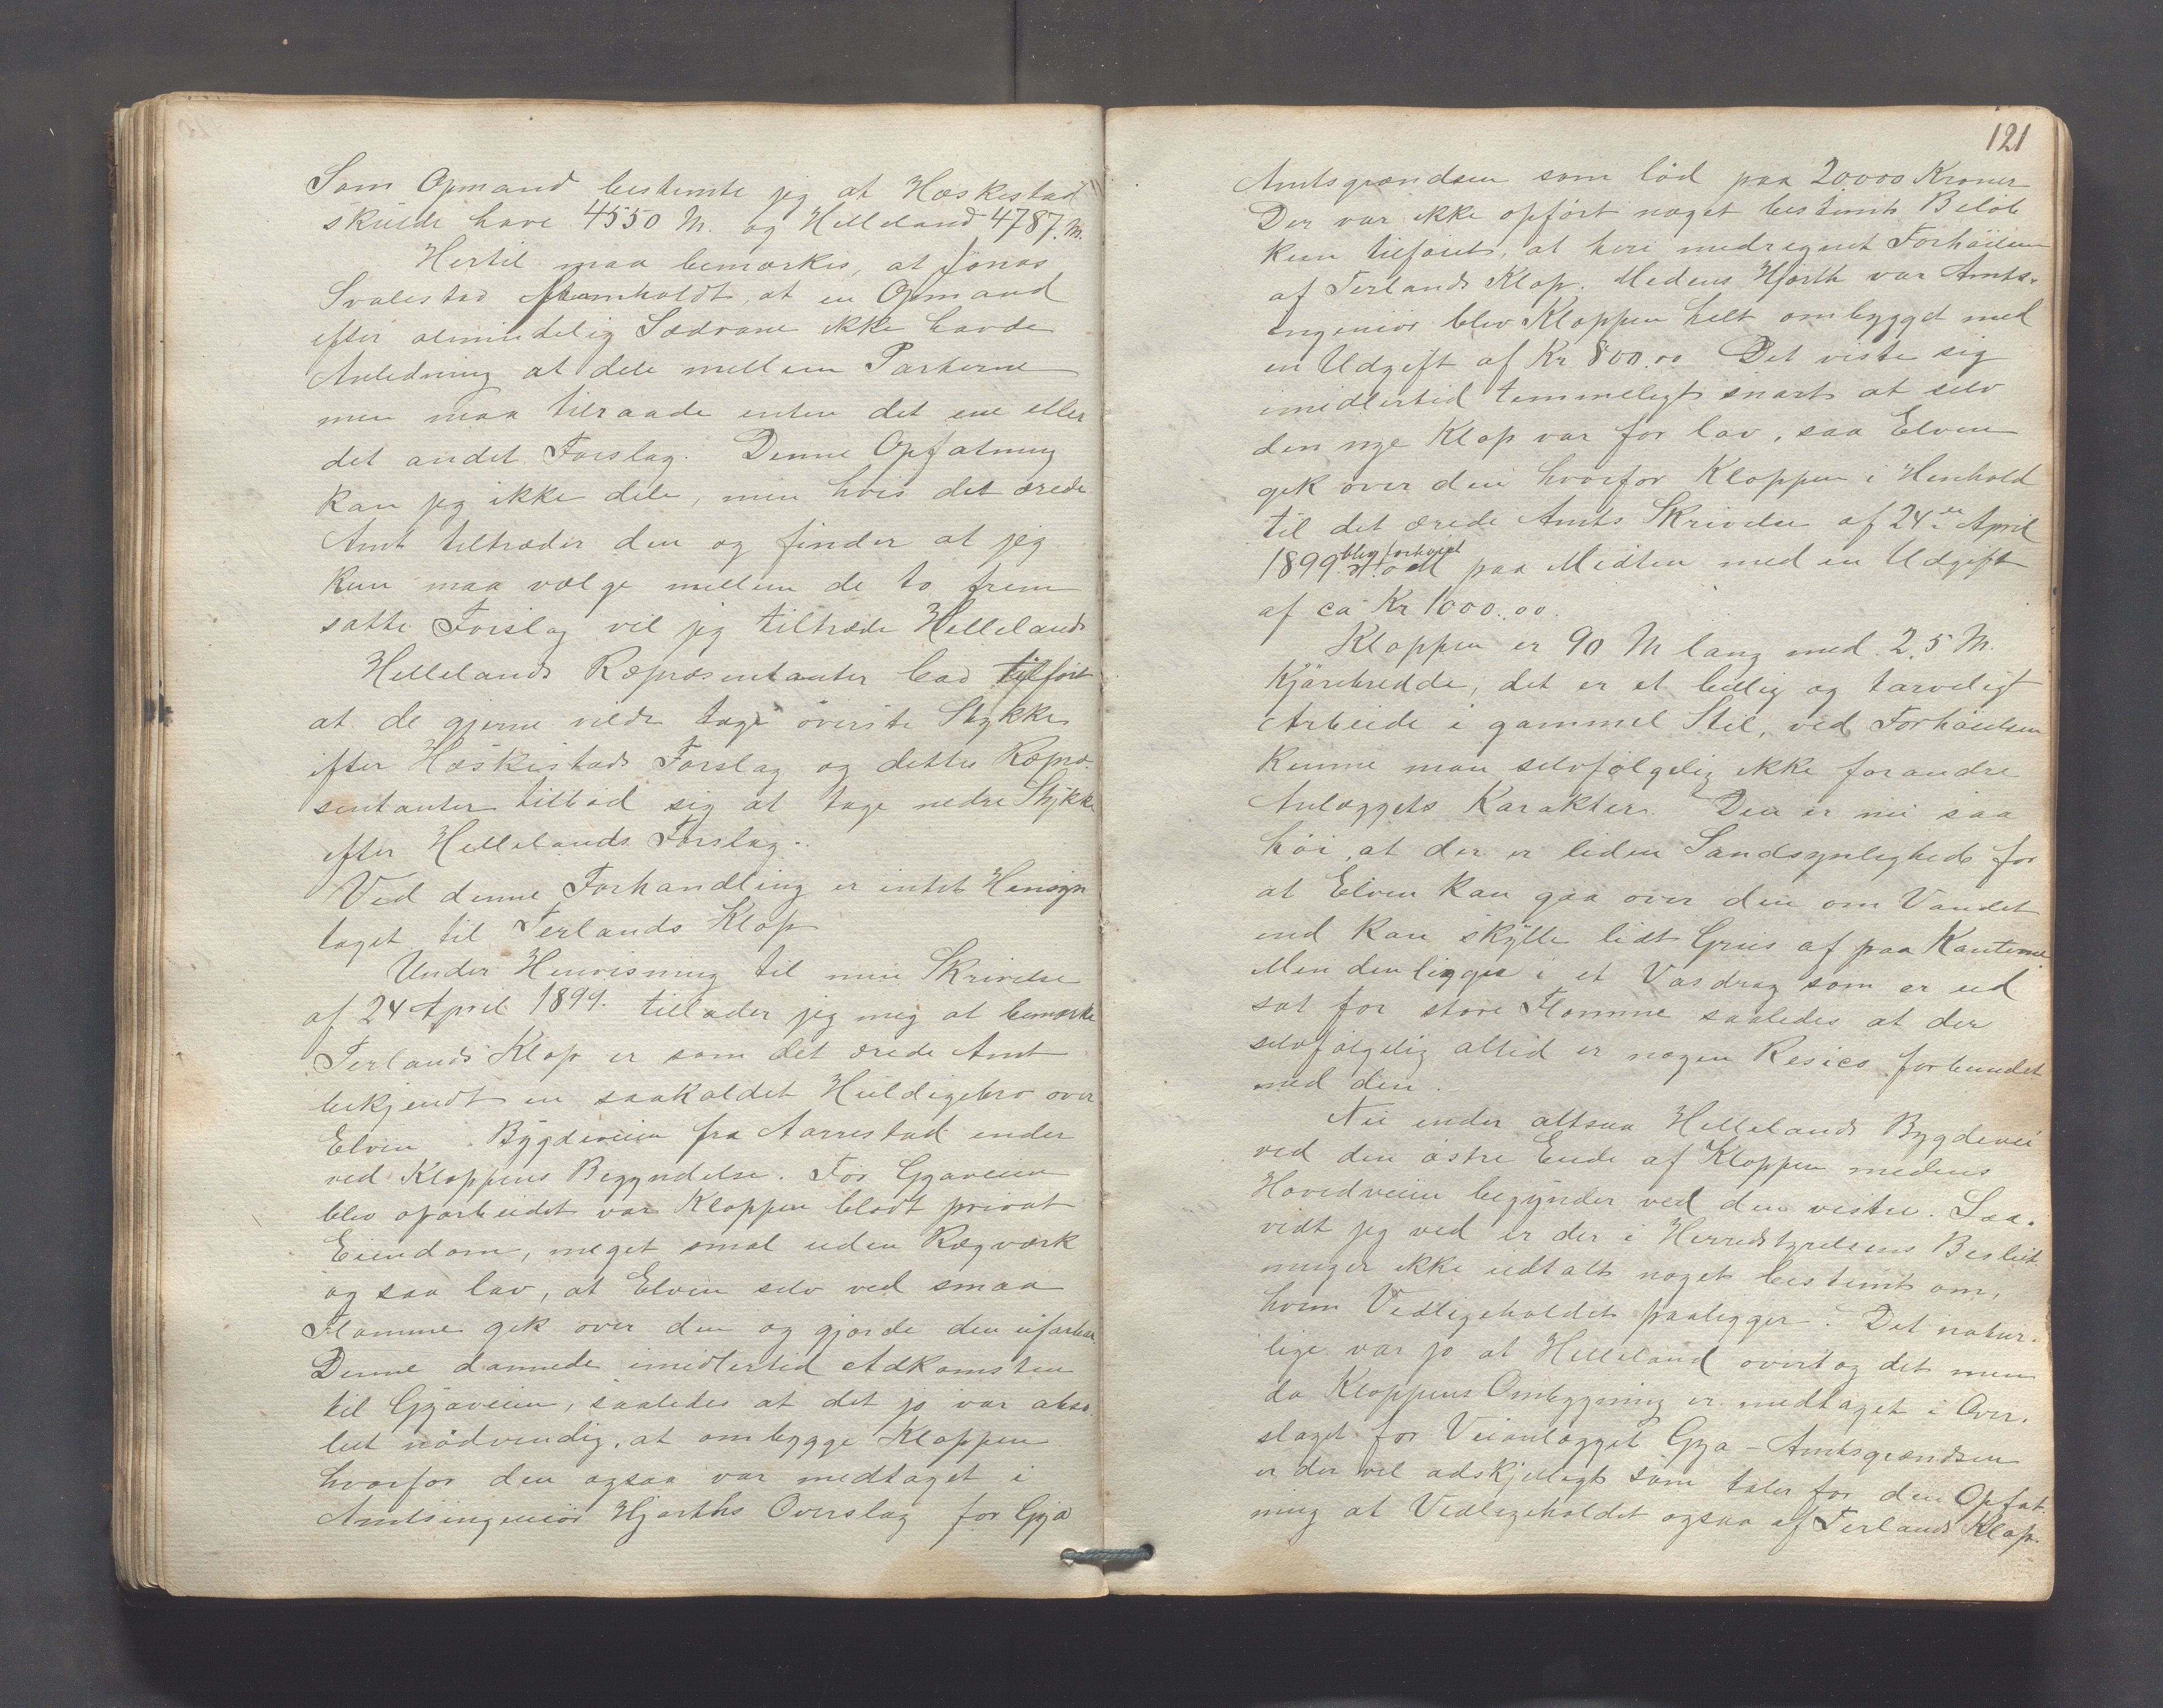 Som Opmand bestemte jeg at Heskestad
skulde have 4550 M. og Helleland 4787. M.
Hertil maa bemærkes, at Jonas
Svalestad fremholdt, at en Opmand
efter almindelig Sædvane ikke havde
Anledning at dele mellem Parterne
men maa tilraade enten det ene eller
det andet Forslag. Denne Opfatning
kan jeg ikke dele, men hvis det ærede
Amt tiltræder den og finder at jeg
kun maa vælge mellem de to frem
satte Forslag vil jeg tiltræde Hellelands
Hellelands Repræsentanter bad tilført
at de gjerne vilde tage øverste Stykke
efter Heskestads Forslag og dettes Repræ-
sentanter tilbød sig at tage nedre Stykke
efter Hellelands Forslag.
Ved denne Forhandling er intet Hensyn
taget til Terlands Klop
Under Henvisning til min Skrivelse
af 24 April 1899. tillader jeg mig at bemærke
Terlands Klop er som det ærede Amt
bekjendt en saakaldet Huldigebro over
Elven. Bygdeveien fra Aarrestad ender
ved Kloppens Begyndelse. Før Gyaveien
blev oparbeidet var Kloppen blodt privat
Eiendom, meget smal uden Rægværk
og saa lav, at Elven selv ved smaa
Flomme gik over den og gjorde den ufarbar.
Denne dannede imidlertid Adkomsten
til Gyaveien, saaledes at det jo var abso-
lut nødvendig, at ombygge Kloppen
hvorfor den ogsaa var medtaget i
Amtsingeniør Hjorths Overslag for Gya
121
Amtsgrændsen som lød paa 20000 Kroner
Der var ikke opført noget bestemt Beløb
kun tilføiet, at heri medregnet Forhøielsen
af Terlands Klop. Medens Hjorth var Amts-
ingeniør blev Kloppen helt ombygget med
en Udgift af Kr 800.00 Det viste sig
imidlertid temmeligt snart at selv
den nye Klop var for lav, saa Elven
gik over den hvorfor Kloppen i Henhold
til det ærede Amts Skrivelse af 24de April
1899 blev forhøiet paa Midten med en Udgift
af ca Kr 1000.00.
Kloppen er 90 M lang med 2.5 M.
Kjørebredde, det er et billig og tarveligt
Arbeide i gammel Stil, ved Forhøielsen
kunne man selvfølgelig ikke forandre
Anlæggets Karakter. Den er nu saa
høi, at der er liden Sandsynlighed for
at Elven kan gaa over den om Vandet
end kan skylle lidt Grus af paa Kanterne.
Men den ligger i et Vasdrag som er ud
sat for store Flomme saaledes at der
selvfølgelig altid er nogen Resico forbundet
med den.
Nu ender altsaa Hellelands Bygdevei
ved den østre Ende af Kloppen medens
Hovedveien begynder ved den vestre. Saa-
vidt jeg ved er der i Herredstyrelsens Beslut
ninger ikke udtalt noget bestemt om,
hvem Vedligeholdet paaligger. Det natur-
lige var jo at Helleland overtog det men
da Kloppens Ombygning er medtaget i Over-
slaget for Veianlægget Gya - Amtsgrændsen
er der vel adskjelligt som taler for den Opfat-
ning at Vedligeholdet ogsaa af Terlands Klop.